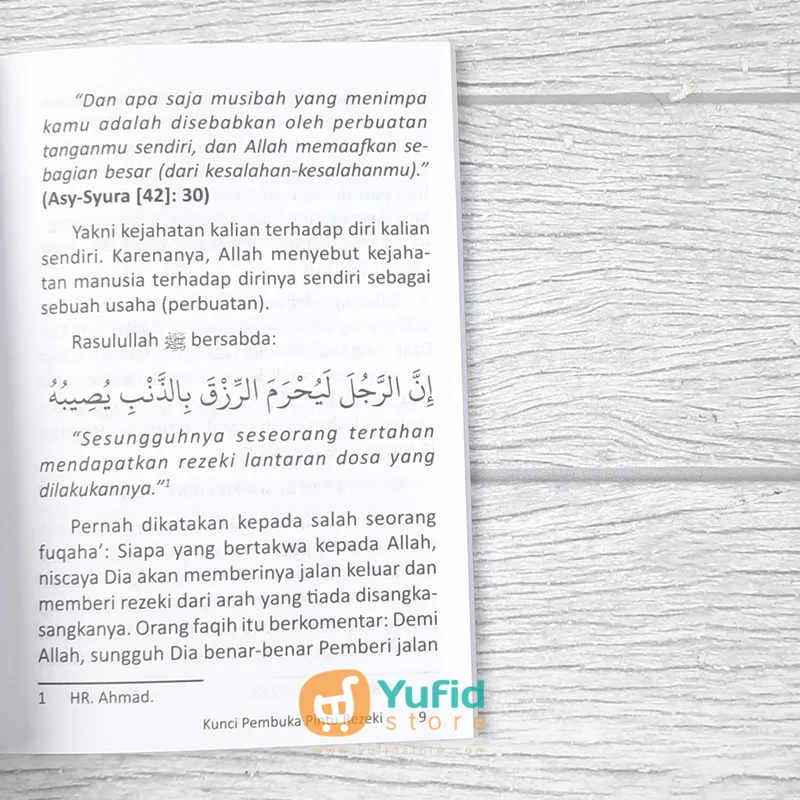 “Dan apa saja musibah yang menimpa
kamu adalah disebabkan oleh perbuatan
tanganmu sendiri, dan Allah memaafkan se-
bagian besar (dari kesalahan-kesalahanmu).”
(Asy-Syura [42]: 30)
Yakni kejahatan kalian terhadap diri kalian
sendiri. Karenanya, Allah menyebut kejaha-
tan manusia terhadap dirinya sendiri sebagai
sebuah usaha (perbuatan).
Rasulullah ﷺ bersabda:
إِنَّ الرَّجُلَ لَيُحْرَمَ الرِّزْقَ بِالذَّنْبِ يُصِيبُهُ
“Sesungguhnya seseorang tertahan
mendapatkan rezeki lantaran dosa yang
dilakukannya.”1
Pernah dikatakan kepada salah seorang
fuqaha’: Siapa yang bertakwa kepada Allah,
niscaya Dia akan memberinya jalan keluar dan
memberi rezeki dari arah yang tiada disangka-
sangkanya. Orang faqih itu berkomentar: Demi
Allah, sungguh Dia benar-benar Pemberi jalan
1 HR. Ahmad.
Kunci Pembuka Pintu Rezeki 9
Yufid
store
www.yufidstore.com